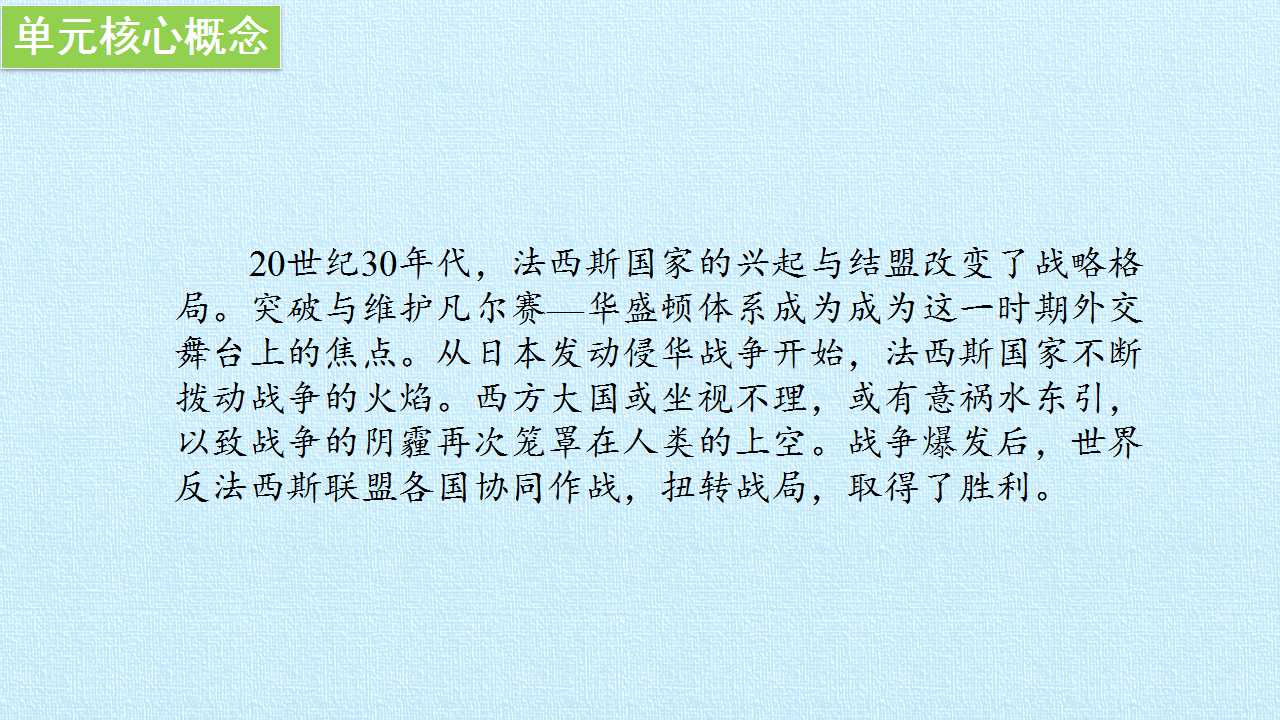 单元核心概念
20世纪30年代，法西斯国家的兴起与结盟改变了战略格
局。突破与维护凡尔赛—华盛顿体系成为成为这一时期外交
舞台上的焦点。从日本发动侵华战争开始，法西斯国家不断
拨动战争的火焰。西方大国或坐视不理，或有意祸水东引，
以致战争的阴霾再次笼罩在人类的上空。战争爆发后，世界
反法西斯联盟各国协同作战，扭转战局，取得了胜利。